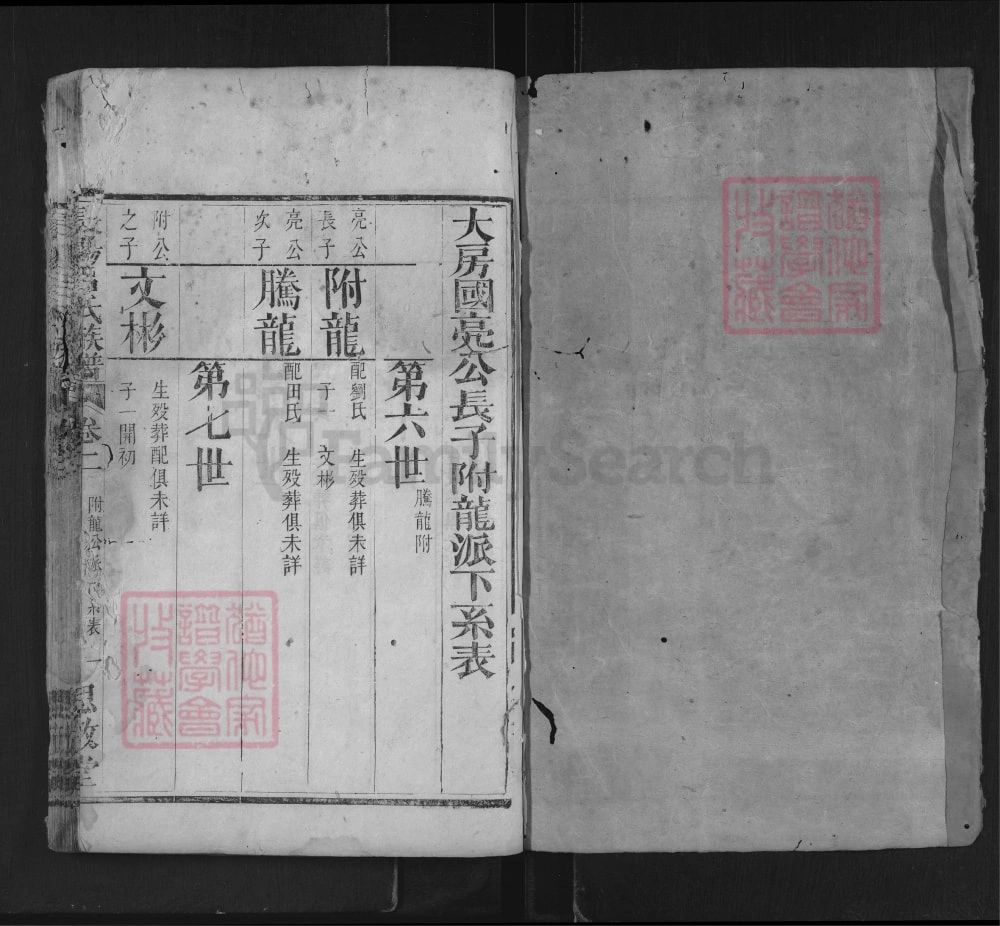 大房國亮公長子附龍派下系表
第六世
騰龍附
亮公
長子
附龍
配劉氏 生歿葬俱未詳
子一 文彬
亮公
次子
騰龍
配田氏 生歿葬俱未詳
第七世
附公
之子
文彬
生歿葬配俱未詳
子一開初
氏族譜
卷二
附龍公派下系表
一
思敬堂
譜學會
收藏
譜學會
收藏
FamilySearch